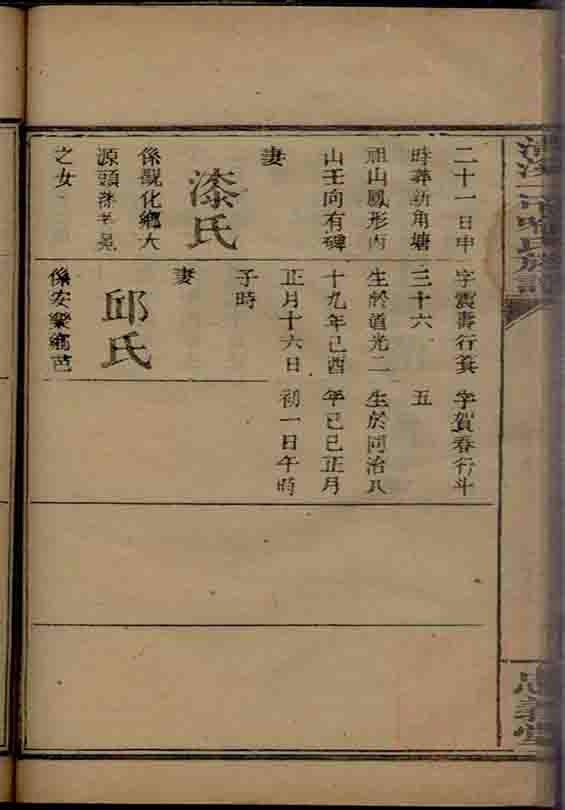 二十一日申
時葬新角塘
祖山鳳形丙
山壬向有碑
妻
漆氏
係觀化鄉大
源頭漆
之女
字震壽行箕
三十六
生於道光二
十九年己酉
正月十六日
子時
妻
邱氏
係安樂鄉芭
字賀春行斗
五
生於同治八
年己巳正月
初一日午時
氏族譜
忠義堂